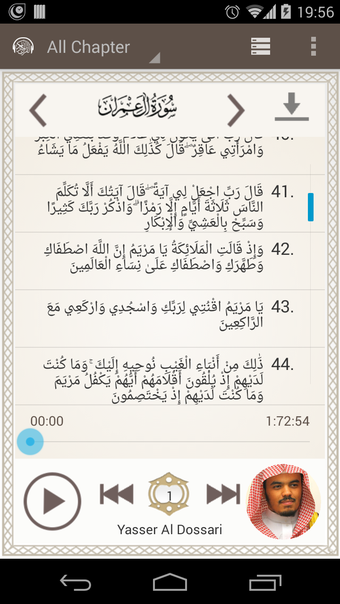 19:56
All Chapter
سورة آل عمران
وَامْرَأَتِي عَاقِرٌ ۖ قَالَ كَذَٰلِكَ اللَّهُ يَفْعَلُ مَا يَشَاءُ
41. قَالَ رَبِّ اجْعَل لِّي آيَةً ۖ قَالَ آيَتُكَ أَلَّا تُكَلِّمَ
النَّاسَ ثَلَاثَةَ أَيَّامٍ إِلَّا رَمْزًا ۗ وَاذْكُر رَّبَّكَ كَثِيرًا
وَسَبِّحْ بِالْعَشِيِّ وَالْإِبْكَارِ
42. وَإِذْ قَالَتِ الْمَلَائِكَةُ يَا مَرْيَمُ إِنَّ اللَّهَ اصْطَفَاكِ
وَطَهَّرَكِ وَاصْطَفَاكِ عَلَىٰ نِسَاءِ الْعَالَمِينَ
43. يَا مَرْيَمُ اقْنُتِي لِرَبِّكِ وَاسْجُدِي وَارْكَعِي مَعَ
الرَّاكِعِينَ
44. ذَٰلِكَ مِنْ أَنبَاءِ الْغَيْبِ نُوحِيهِ إِلَيْكَ ۚ وَمَا كُنتَ
لَدَيْهِمْ إِذْ يُلْقُونَ أَقْلَامَهُمْ أَيُّهُمْ يَكْفُلُ مَرْيَمَ
وَمَا كُنتَ لَدَيْهِمْ إِذْ يَخْتَصِمُونَ
00:00 1:72:54
1
Yasser Al Dossari